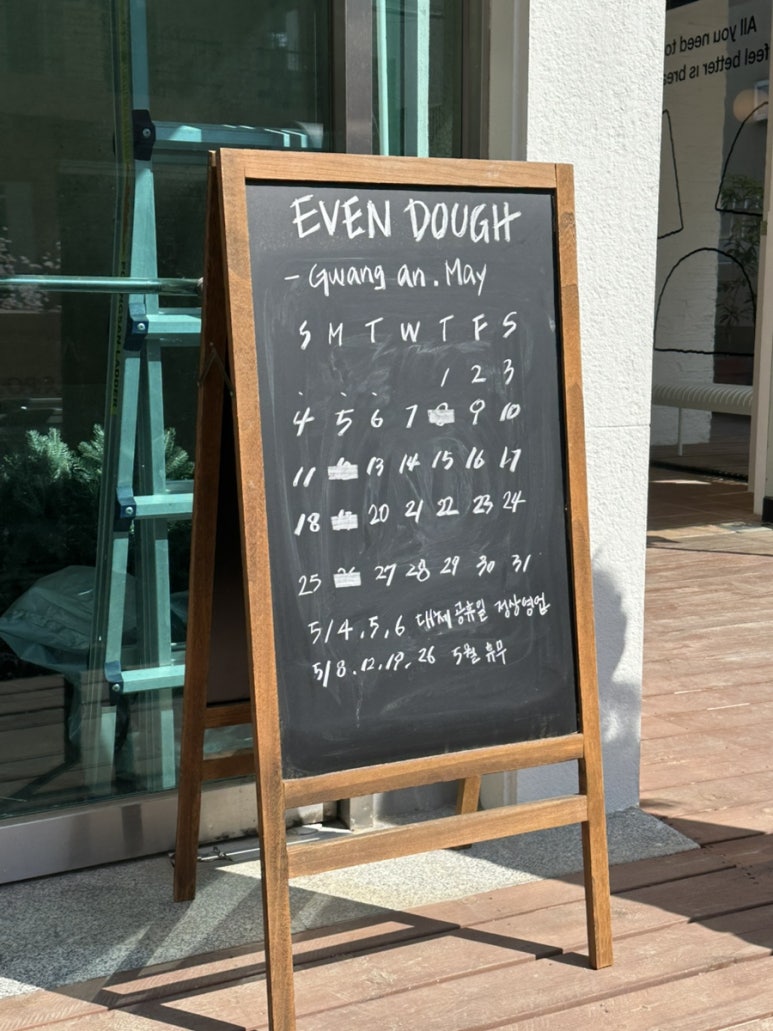 All you need to
feel better is brea
EVEN DOUGH
- Gwang an. May
S M T W T F S
1 2 3
4 5 6 7 8 9 10
11 13 14 15 16 17
18 20 21 22 23 24
25 26 27 28 29 30 31
5/4.5.6 대체공휴일 정상영업
5/8.12.19.26 5월 휴무
LADDER